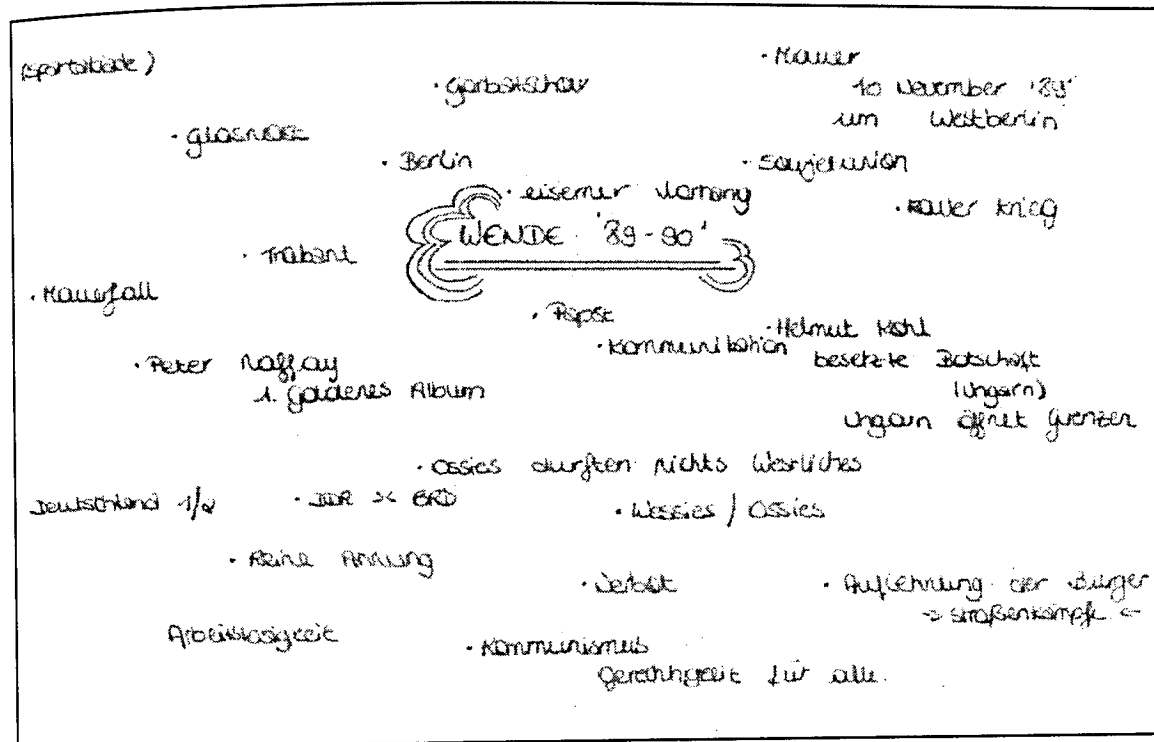 · Mauer
10 November '89'
um Westberlin
· Gorbatschow
· Glasnost
· Berlin
· Sowjetunion
· eiserner Vorhang
· kalter Krieg
WENDE '89-90'
· Trabant
· Mauerfall
· Papst
· Helmut Kohl
· Kommunikation
besetzte Botschaft
(Ungarn)
Ungarn öffnet Grenzen
· Peter Maffay
1. goldenes Album
· Ossies durften nichts Westliches
Deutschland 1/2
· DDR >< BRD
· Wessies / Ossies
· Keine Ahnung
· Herbst
· Auflehnung der Bürger
-> Straßenkämpfe <-
Arbeitslosigkeit
· Kommunismus
Gerechtigkeit für alle.